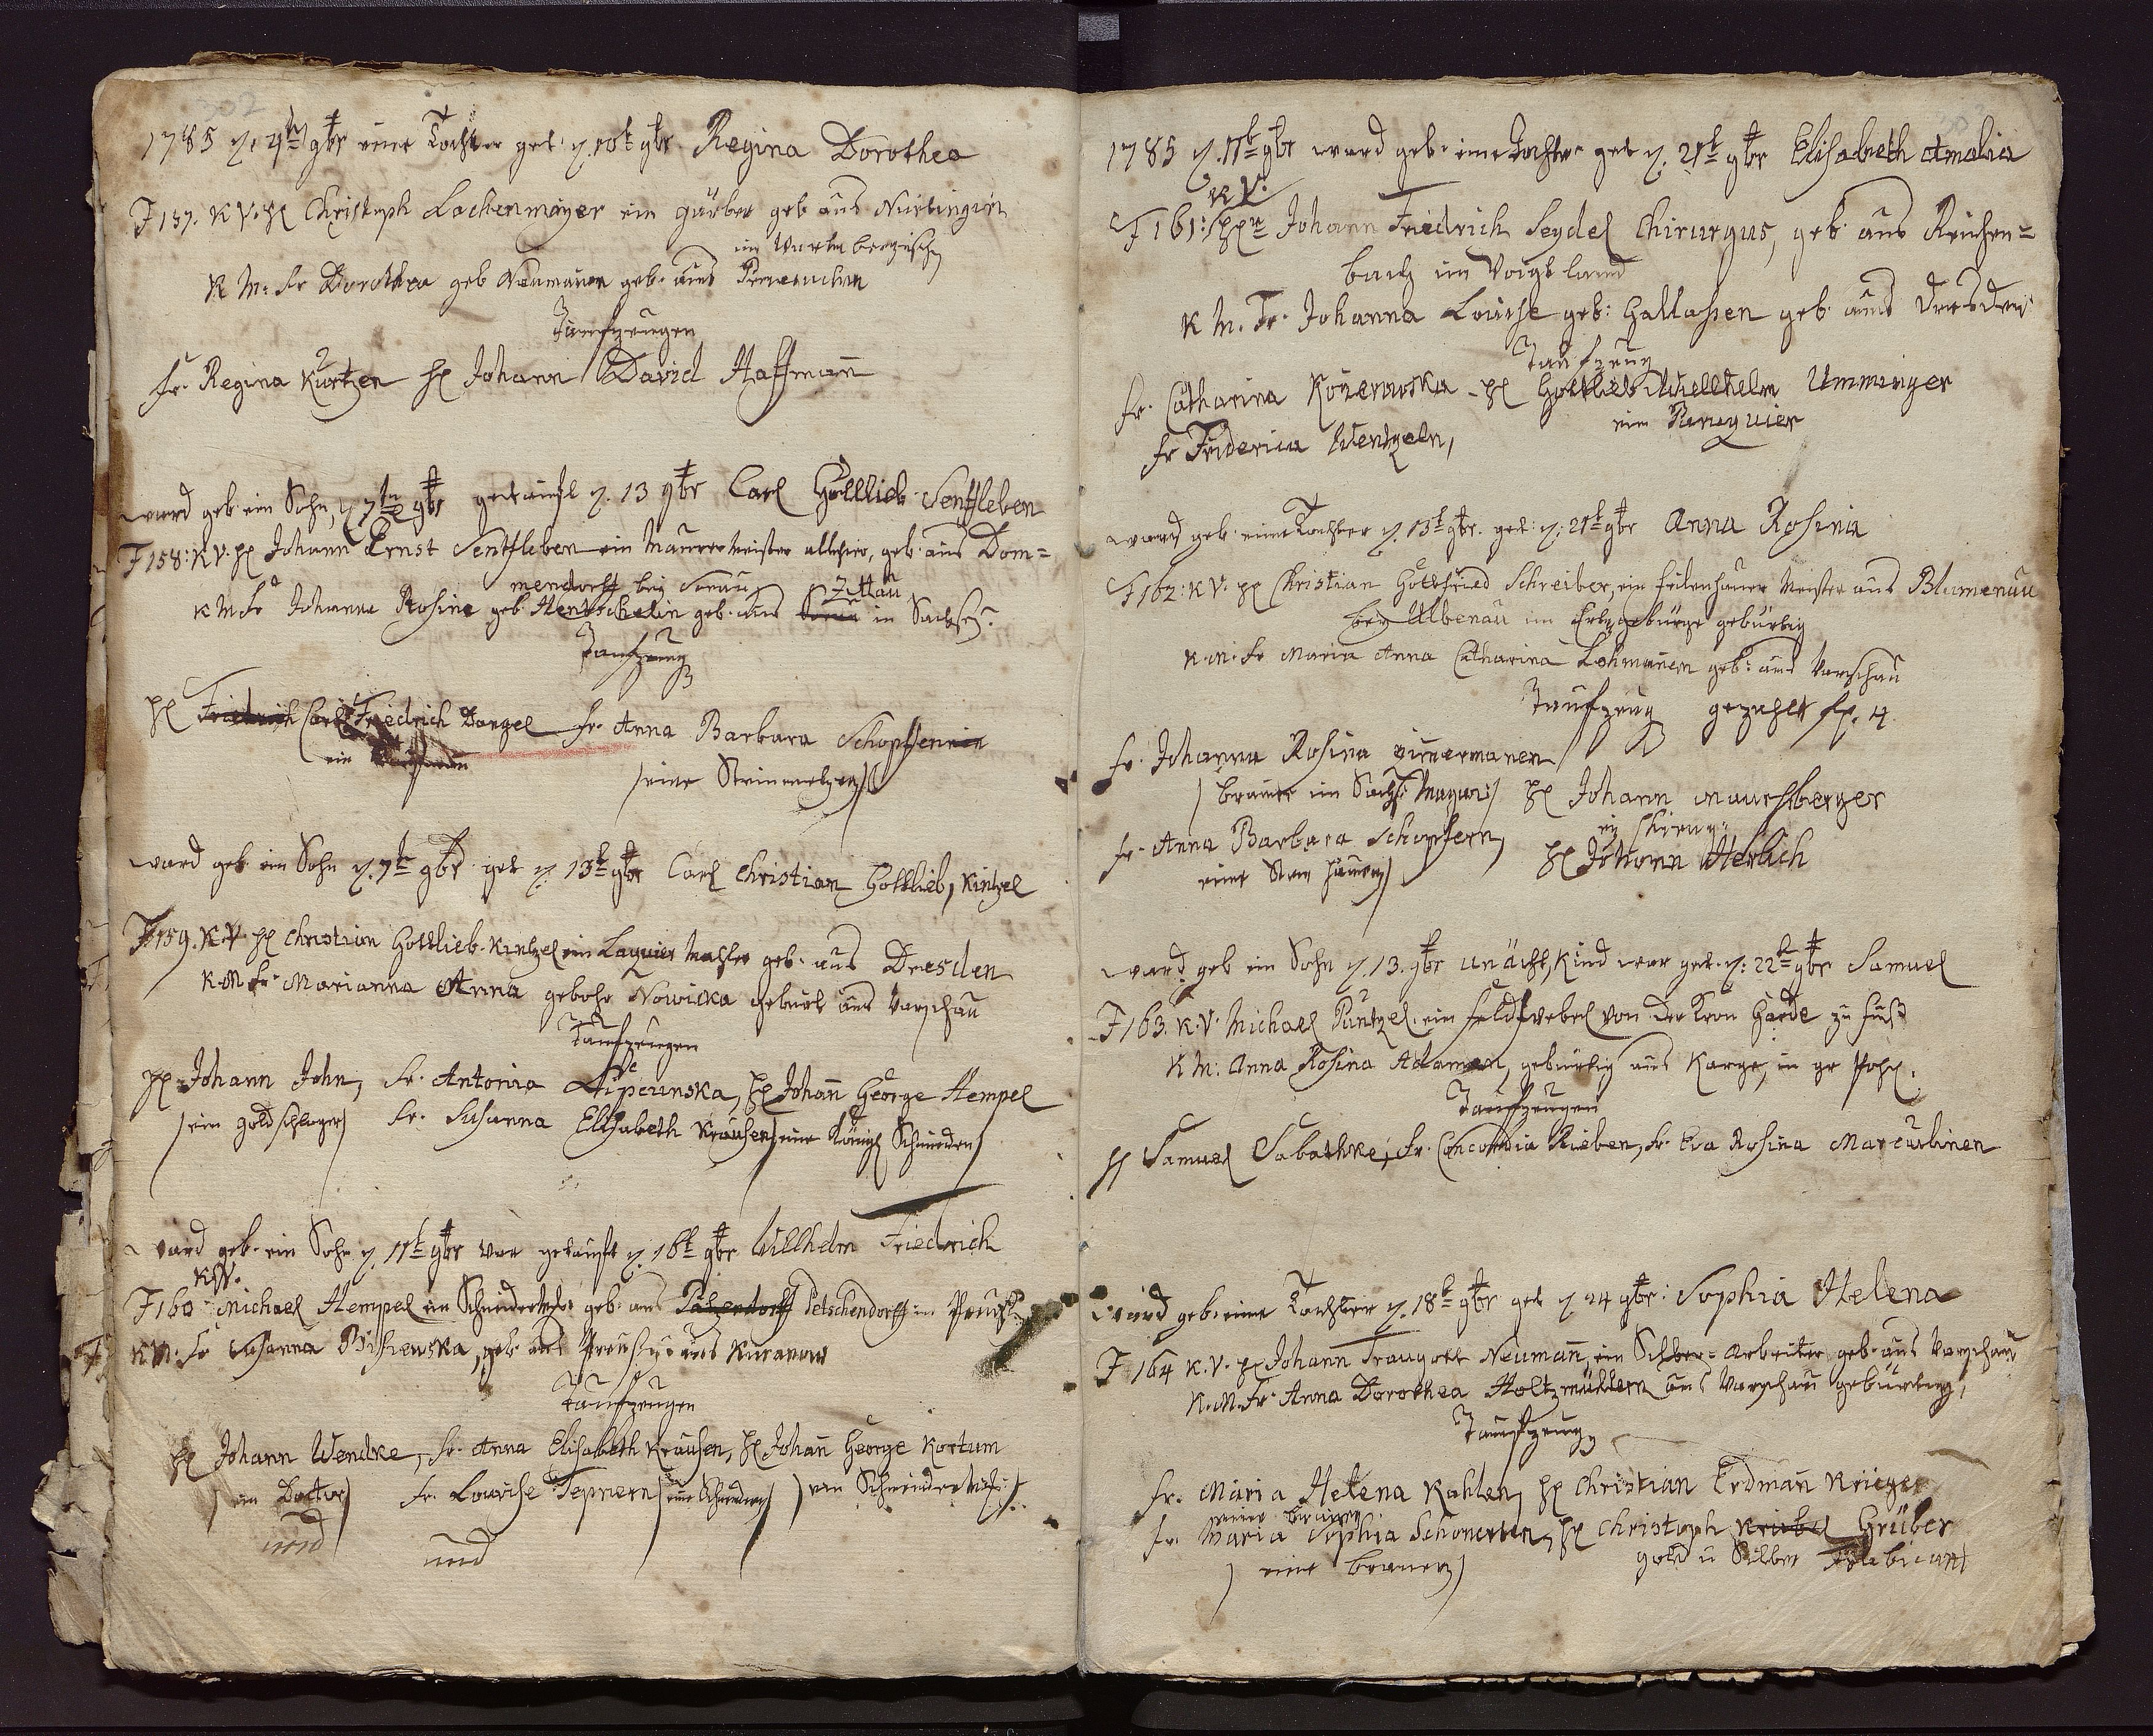 302
1785 d. 4tn 9br eine Tochter get. d. 10t 9br. Regina Dorothea
F 157. K V. H Christoph Lachenmayer ein gärber geb aus Nürtingen
im Würtenbergischen
K M: Fr Dorothea geb Neumannen geb. aus
Taufzeugen
Fr. Regina Kurtzen H Johann David Haffmañ
ward geb ein Sohn, d 7tn 9br getauft d. 13 9br Carl Gottlieb Senftleben
F 158: K V. H Johann Ernst Senftleben ein Maurermeister allhier, geb. aus Dom=
mendorff bey Sorau
K M Fr Johanna Rosine geb. Hentschelin geb. aus Sorau Zittau in Sachsen
Taufzeug
H Friedrich Carl Friedrich Dangel Fr. Anna Barbara Schopfennin
ein Kaufmann (eine Steinmetzen)
ward geb. ein Sohn d. 7t 9br get d. 13t 9br Carl Christian Gottlieb, Kintzel
F 159. K. V. H Christian Gottlieb Kintzel ein Laquier Mahler geb. aus Dresden
K. M Fr. Marianna Anna gebohr Nowicka gebürt aus Varschau
Taufzeugen
H Johann John, Fr. Antonia Lipcunska, H Johañ George Hempel
(ein Goldschlager) Fr. Susanna Elisabeth Krausen, eine Königl Schneidern)
ward geb. ein Sohn d. 11t 9br war getauft d. 16t 9br Willhelm Friedrich
K V.
F 160 Michael Hempel ein Schneider geb. aus Patzendorff Petschendorff in Preuss
K M. Fr Susanna Bisiewska, geb. aus Preussen aus Kuranow
Taufzeugen
H Johann Wendke, Fr. Anna Elisabeth Krausen, H Johañ George Kortum
(ein Doctor) Fr. Louise Tepnern (eine Schneidern) (ein Schneidermeist.)
und und
1785 d. 11t 9br ward geb. eine Tochter get d. 21t 9br Elisabeth Amalia
K V.
F 161: H Johann Friedrich Seydel Chirurgus, geb. aus Reichen=
bach im Voigtland
K M. Fr. Johanna Louise geb: Gallassen geb. aus Dresden
Taufzeug
Fr. Catharina Kozerowska H Gottlieb Willhelm Umminger
ein Banquier
Fr Friderica Wentzeln,
ward geb. eine Tochter d. 13t 9br. get: d. 21t 9br Anna Rosina
F 162: K V. H Christian Gottfried Schreiber, ein feilenhauer Meister aus Blumenau
bey Olbenau im Ertzgebürge gebürtig
K. M. Fr Maria Anna Catharina Lohmañen geb: aus Varschau
Taufzeug gezahlt fl. 4
Fr. Johanna Rosina Zimermanen
H Johann Maurssberger
Fr. Anna Barbara Schopfern, ein Chirurg:
eine Stein hauern) H Johann Herlich
ward geb ein Sohn d. 13. 9br unächt, Kind war get. d: 22t 9br Samuel
F 163. K. V. Michael Puntzel ein feldwebel von der Kron Garde zu fuss
K M: Anna Rosina Adamen, gebürtig aus Karge, in gr Pohl.
Taufzeugen
H Samuel Sabathke, Fr. Concordia Rieben, Fr. Eva Rosina Marcurbinen
ward geb. eine Tochter d. 18t 9br get d. 24 9br: Sophia Helena
F 164 K. V. H Johann Traugott Neumañ, ein Silber=arbeiter geb. aus Varschau
K. M. Fr. Anna Dorothea Holtzmüllern aus Varschau gebürtig,
Taufzeug
Fr. Maria Helena Kahlen, H Christian Erdmañ Krieger
Fr. Maria Sophia Schonerten, H Christoph Grüber
(eine brauern) gold u Silber Fabicant